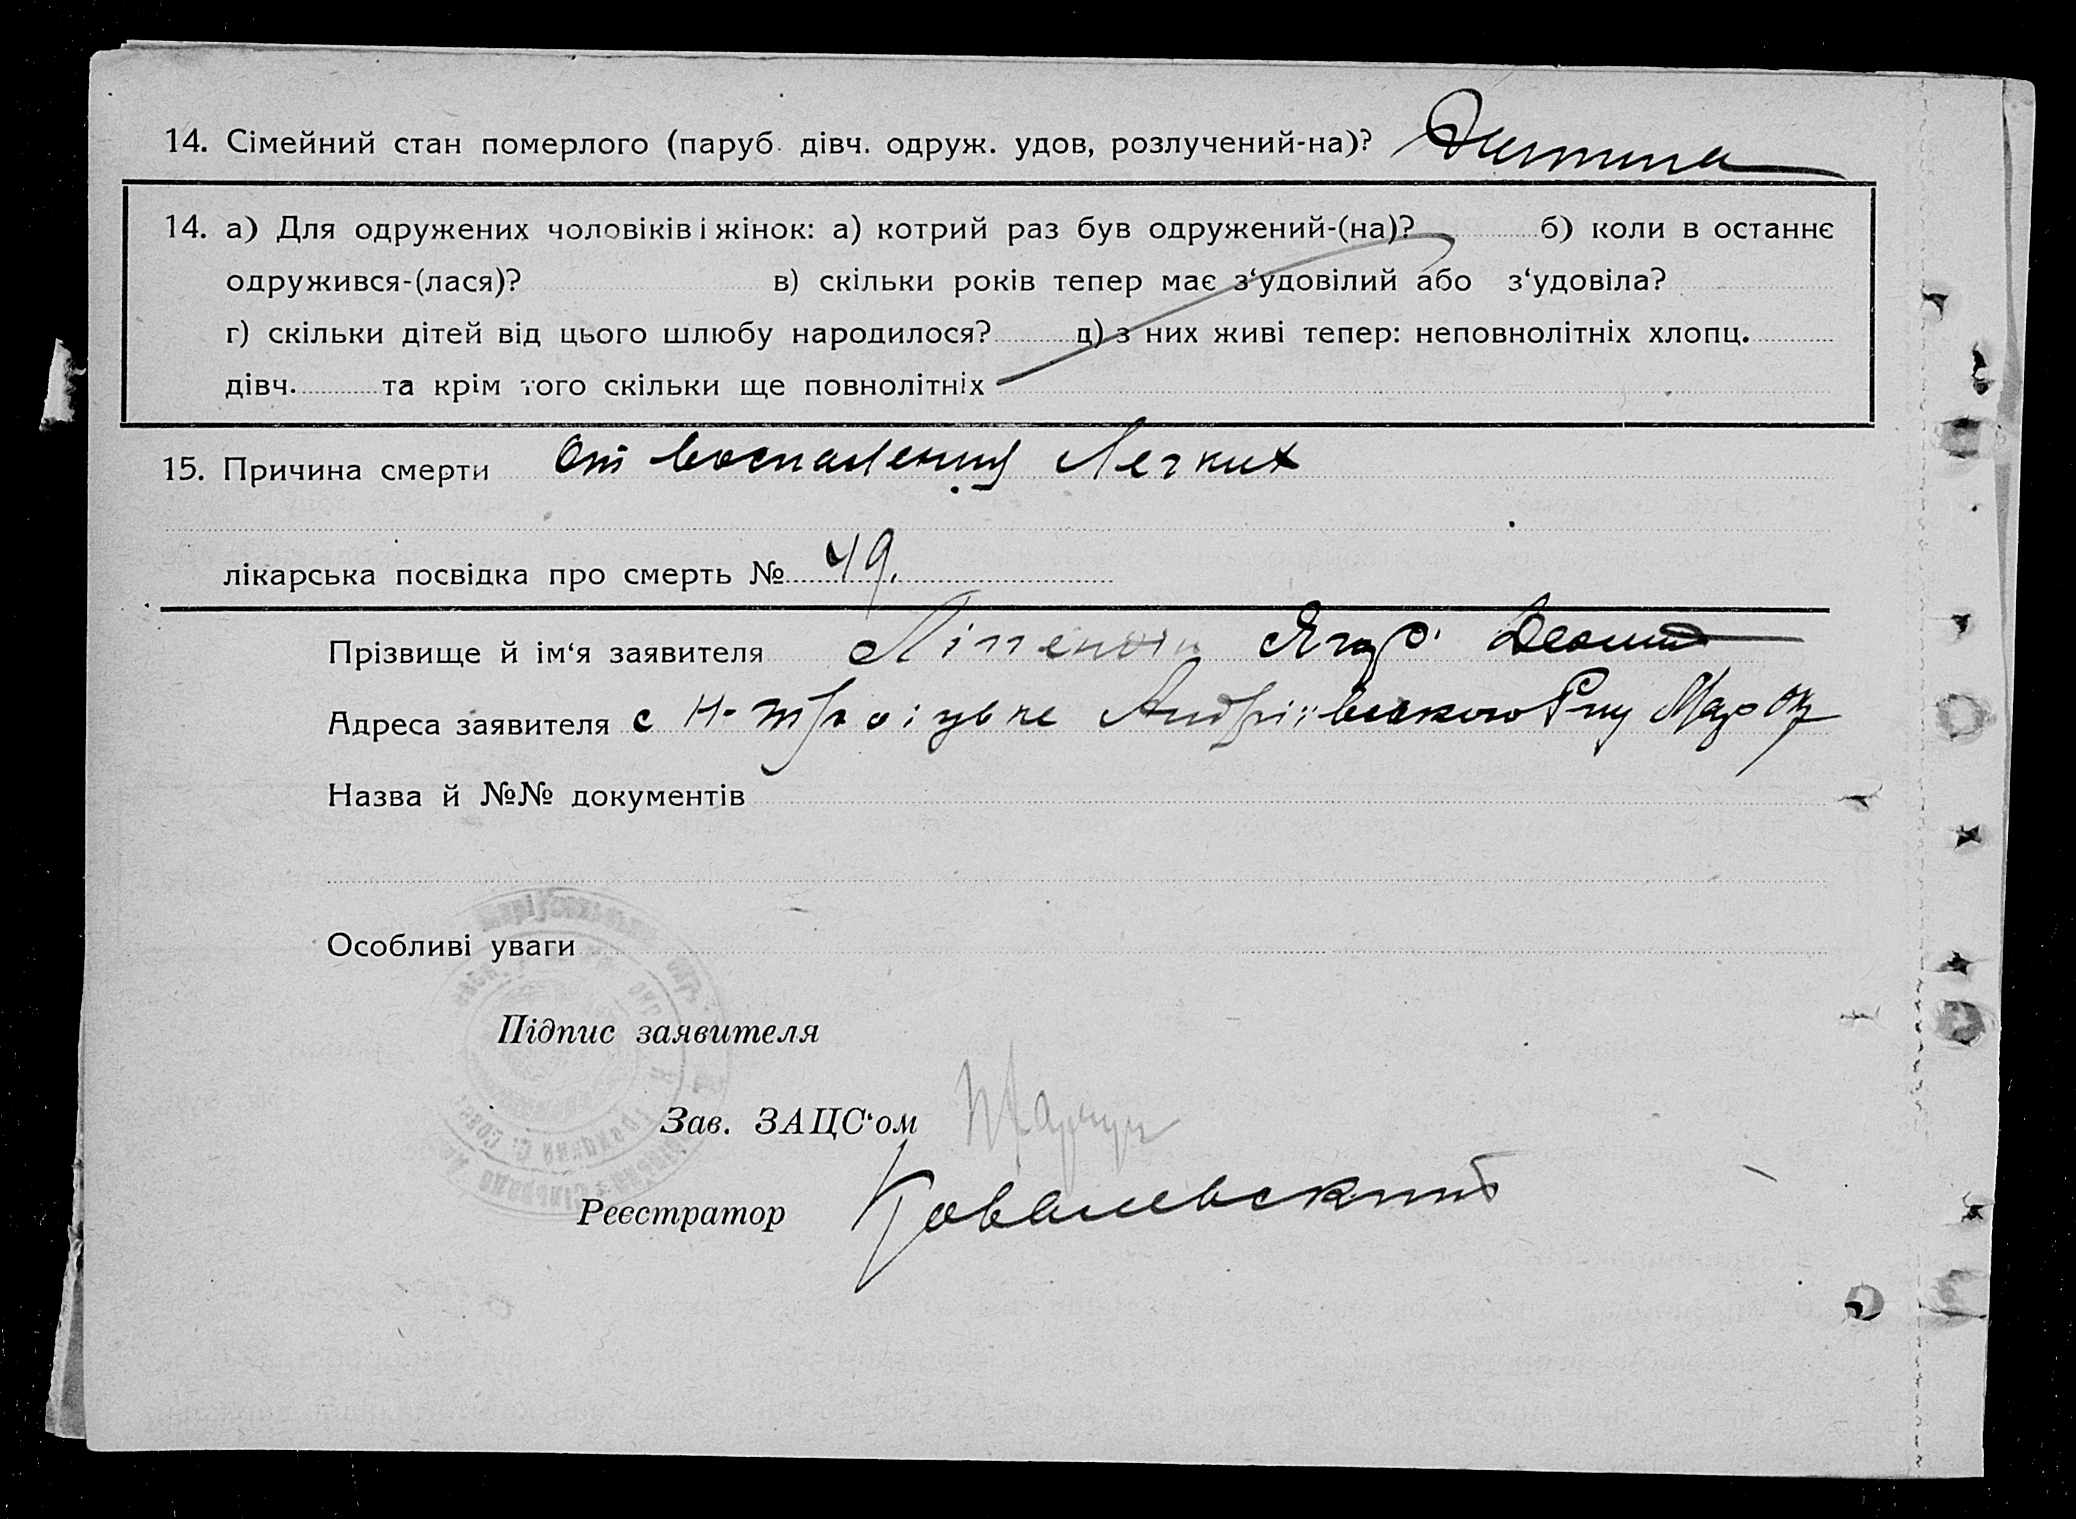 14. Сімейний стан померлого (паруб. дівч. одруж. удов, розлучений-на)? Дитина
14. а) Для одружених чоловіків і жінок: а) котрий раз був одружений-(на)? б) коли в останнє
одружився-(лася)? в) скільки років тепер має з‘удовілий або з‘удовіла?
г) скільки дітей від цього шлюбу народилося? д) з них живі тепер: неповнолітніх хлопц.
дівч. та крім того скільки ще повнолітніх
15. Причина смерти От воспаления Легких
лікарська посвідка про смерть № 49.
Прізвище й ім‘я заявителя
Адреса заявителя с Н-Троїцьке Андріївського Р-ну Мар Ок
Назва й №№ документів
Особливі уваги
Підпис заявителя
Зав. ЗАЦС‘ом
Реєстратор Ковалевский